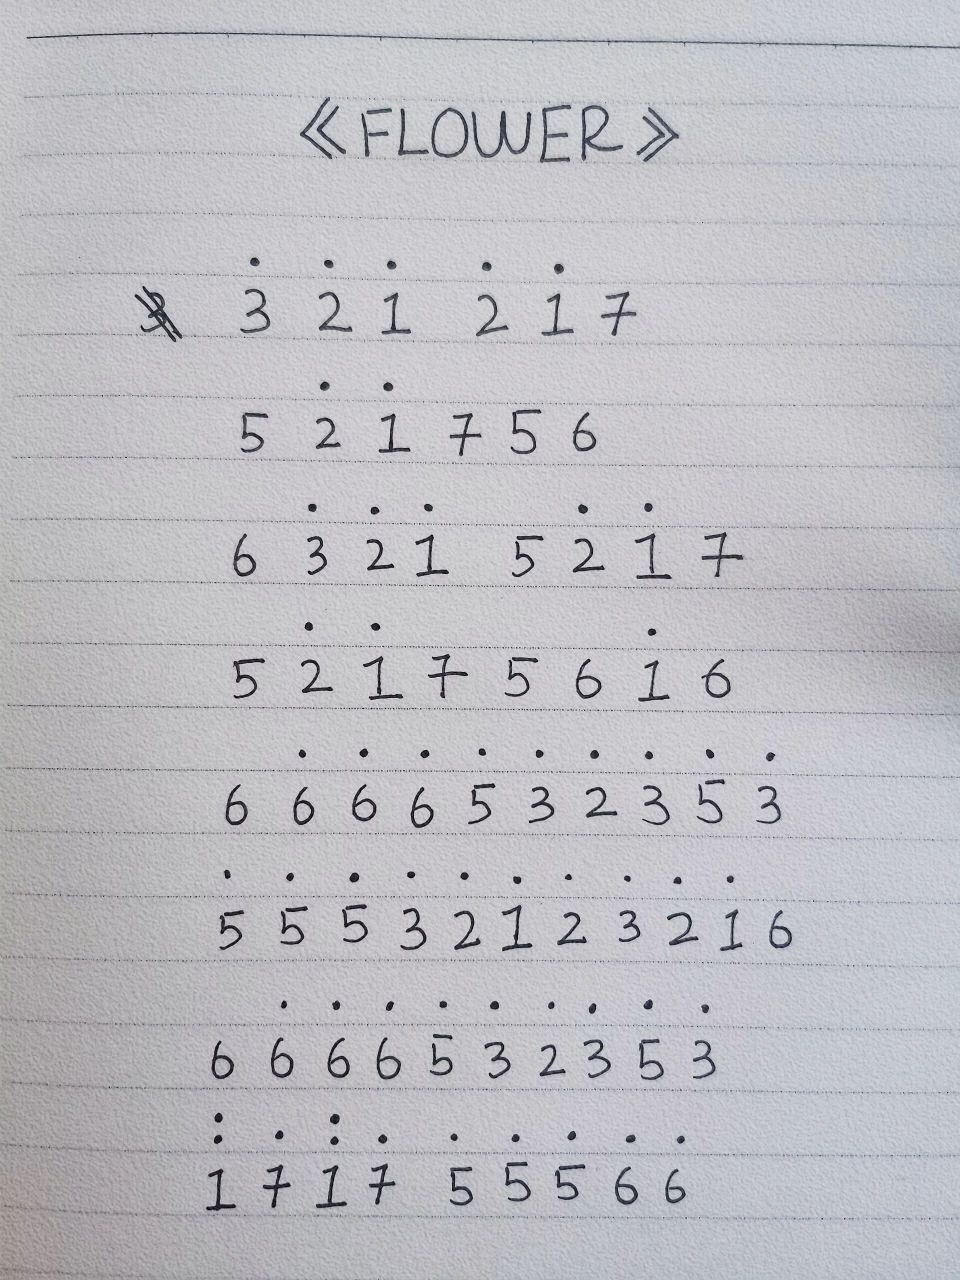 《FLOWER》
3̇ 2̇ 1̇ 2̇ 1̇ 7
5 2̇ 1̇ 7 5 6
6 3̇ 2̇ 1̇ 5 2̇ 1̇ 7
5 2̇ 1̇ 7 5 6 1̇ 6
6 6̇ 6̇ 6̇ 5̇ 3̇ 2̇ 3̇ 5̇ 3̇
5̇ 5̇ 5̇ 3̇ 2̇ 1̇ 2̇ 3̇ 2̇ 1̇ 6
6 6̇ 6̇ 6̇ 5̇ 3̇ 2̇ 3̇ 5̇ 3̇
1̇̇ 7̇ 1̇̇ 7̇ 5̇ 5̇ 5̇ 6̇ 6̇